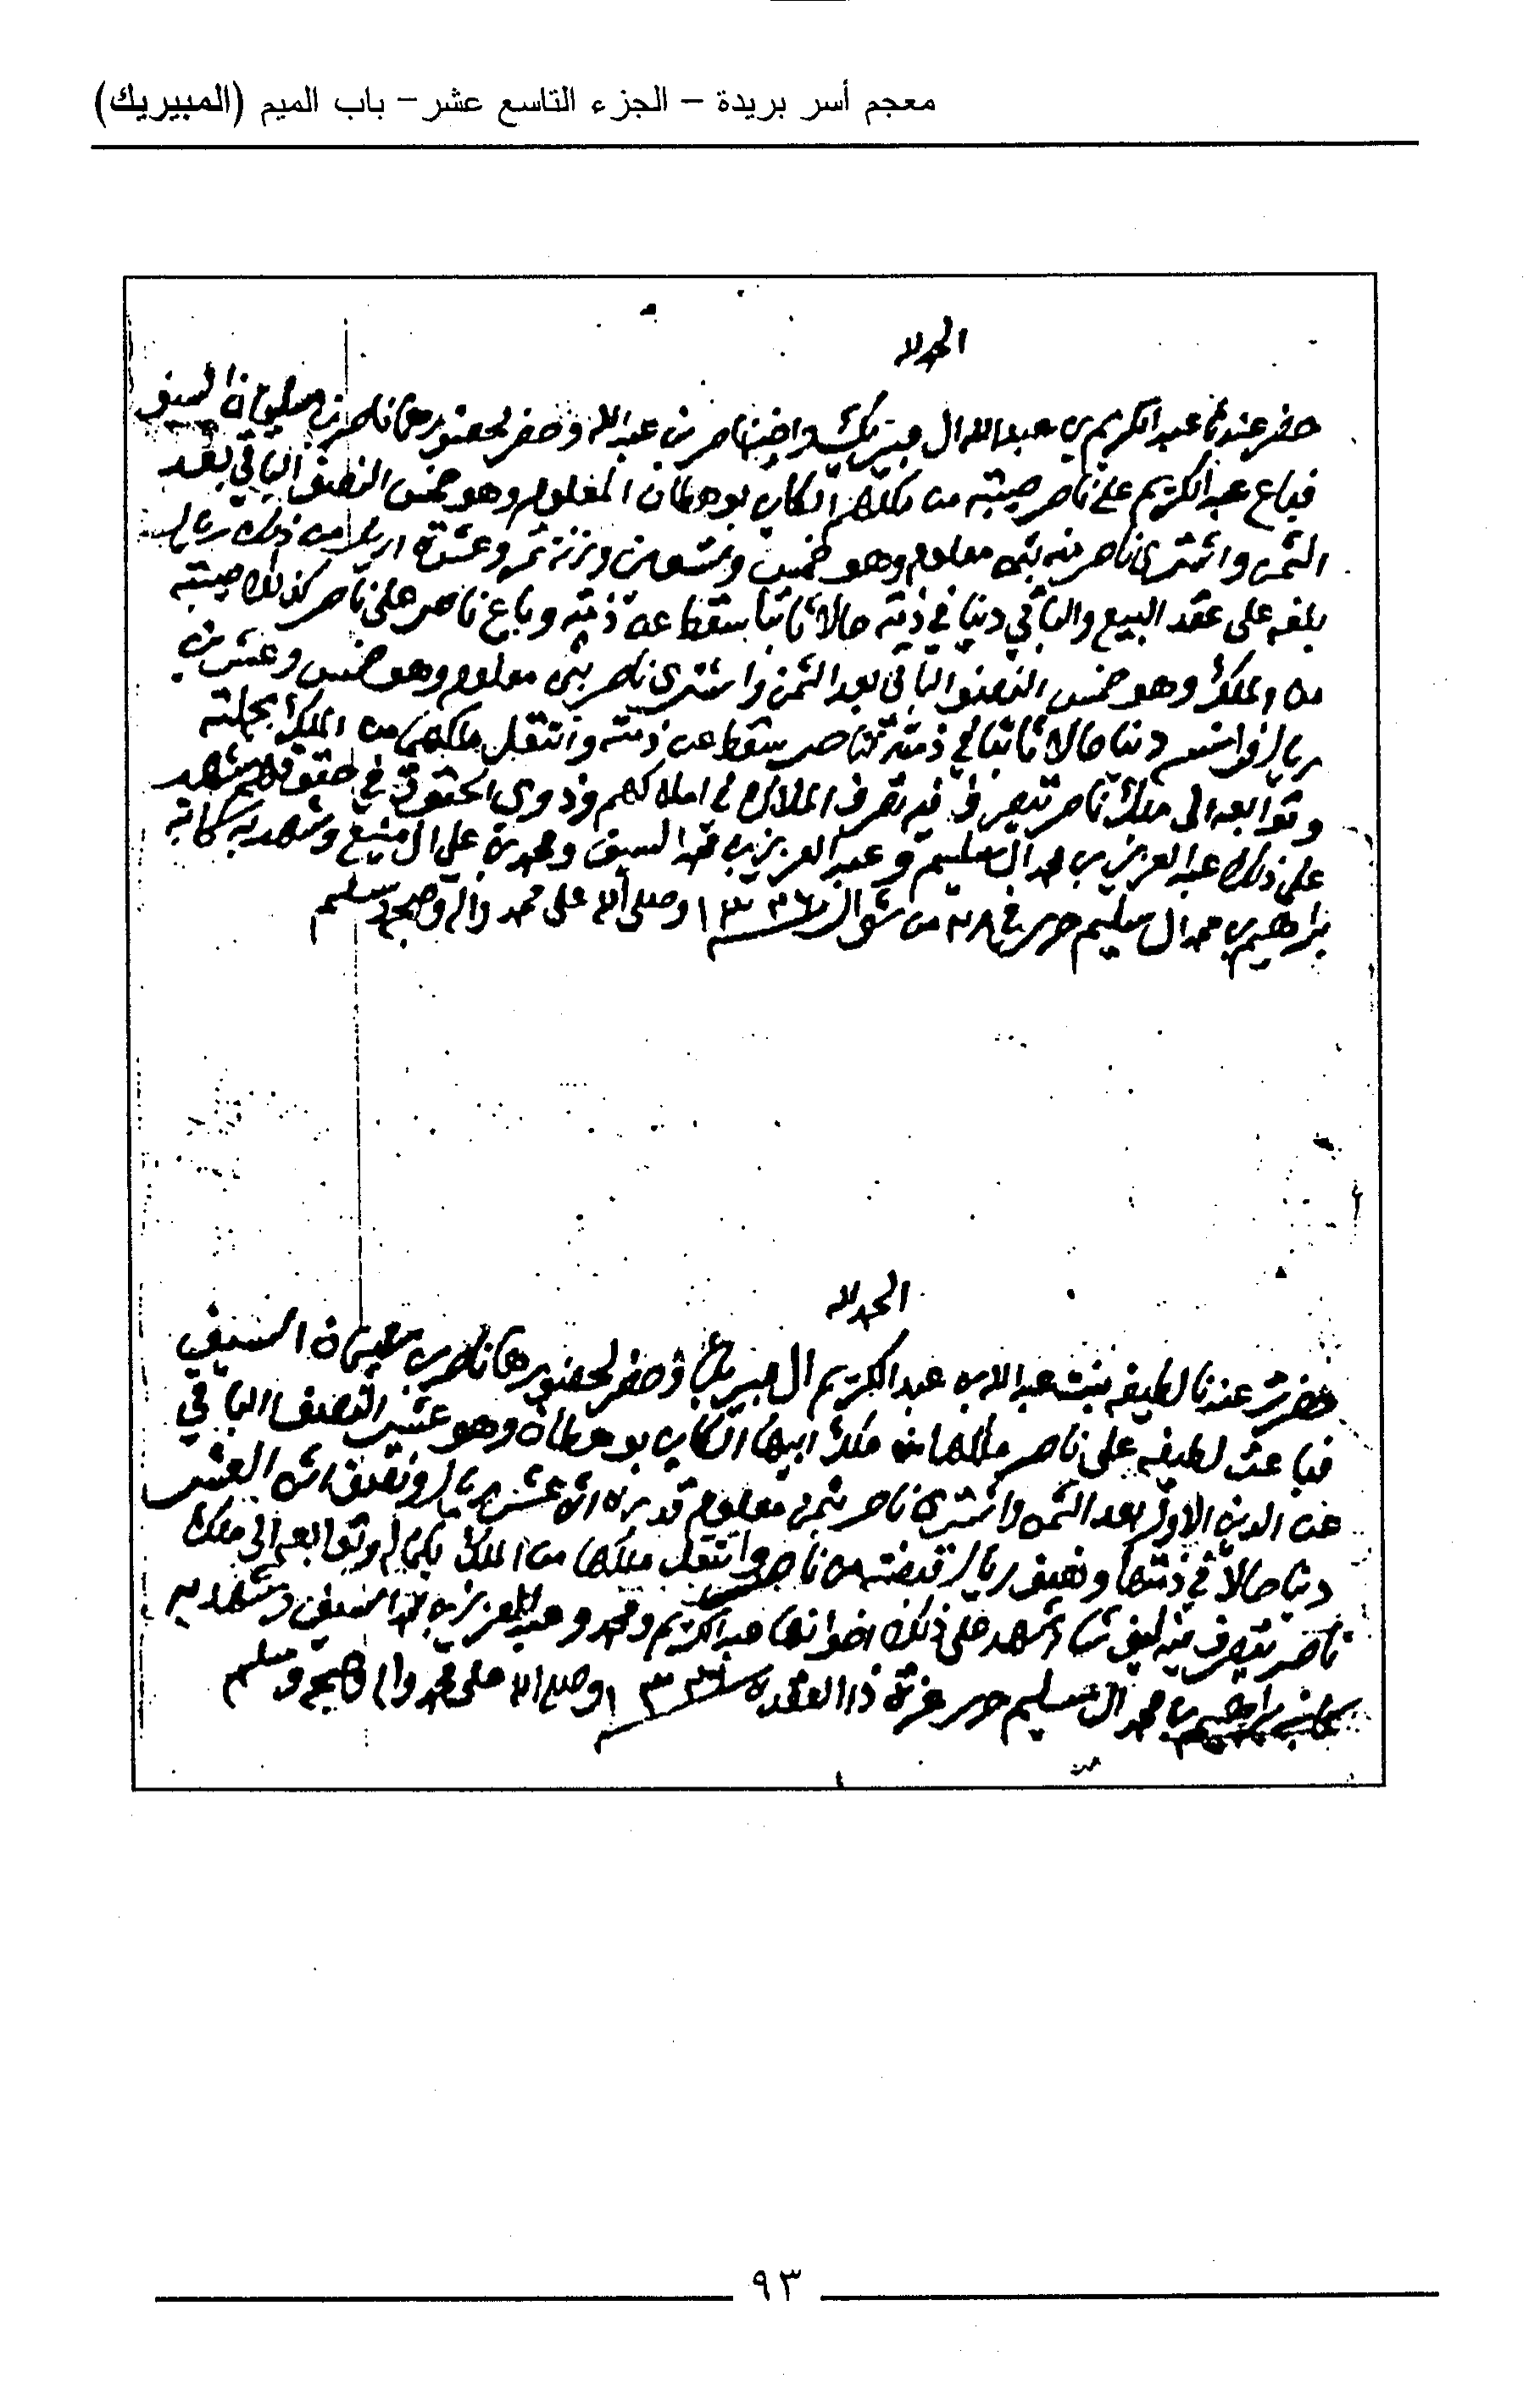 معجم أسر بريدة – الجزء التاسع عشر – باب الميم (المبيريك)
الحمد لله
حضر عندنا عبد الكريم بن عبد الله ال مبيريك واخيه ناصر بن عبد الله وحضر لحضورهما ناصر بن سليمان السيف
فباع عبد الكريم على ناصر صيبته من ملكهم الكاين بوهطان المعلوم وهو خمس النصف الباقي بعد
الثمن واشترى ناصر منه بثمن معلوم وهو خمس وتسعين وزنة تمر وعشرة اريل من ذلك ريال
بلغه على عقد البيع والباقي دينا في ذمته حالا ثابتا سقط عن ذمته وباع ناصر على ناصر كذلك صيبته
من الملك وهو خمس النصف الباقي بعد الثمن واشترى ناصر بثمن معلوم وهو خمس وعشرين
ريال فرانسه دينا حالا ثابتا في ذمته لناصر سقط عن ذمته وانتقل ملكهما من الملك بجملته
وتوابعه الى ملك ناصر يتصرف فيه تصرف الملاك في املاكهم وذوي الحقوق في حقوقهم شهد
على ذلك عبد العزيز بن محمد ال سليم وعبد العزيز بن حمد السيف ومحمد بن علي ال منيع وشهد به كاتبه
ابراهيم بن محمد ال سليم حرر في ٢٨ من شوال ١٣٣٦ وصلى الله على محمد واله وصحبه وسلم
الحمد لله
حضرت عندنا لطيفه بنت عبد الله بن عبد الكريم ال مبيريك وحضر لحضورها ناصر بن سليمان السيف
فباعت لطيفه على ناصر ملكها من ملك ابيها الكاين بوهطان وهو عشر النصف الباقي
عن الدين الاول بعد الثمن واشترى ناصر بثمن معلوم قدره اثنا عشر ريال ونصف اثنا العشر
دينا حالا في ذمتها ونصف ريال قبضته من ناصر وانتقل ملكها من الملك بكماله وتوابعه الى ملك
ناصر يتصرف فيه كيف شاء شهد على ذلك اخوانها عبد الكريم ومحمد وعبد العزيز بن حمد السيف وشهد به
كاتبه ابراهيم بن محمد ال سليم حرر غرة ذا القعدة ١٣٣٦ وصلى الله على محمد واله وصحبه وسلم
٩٣